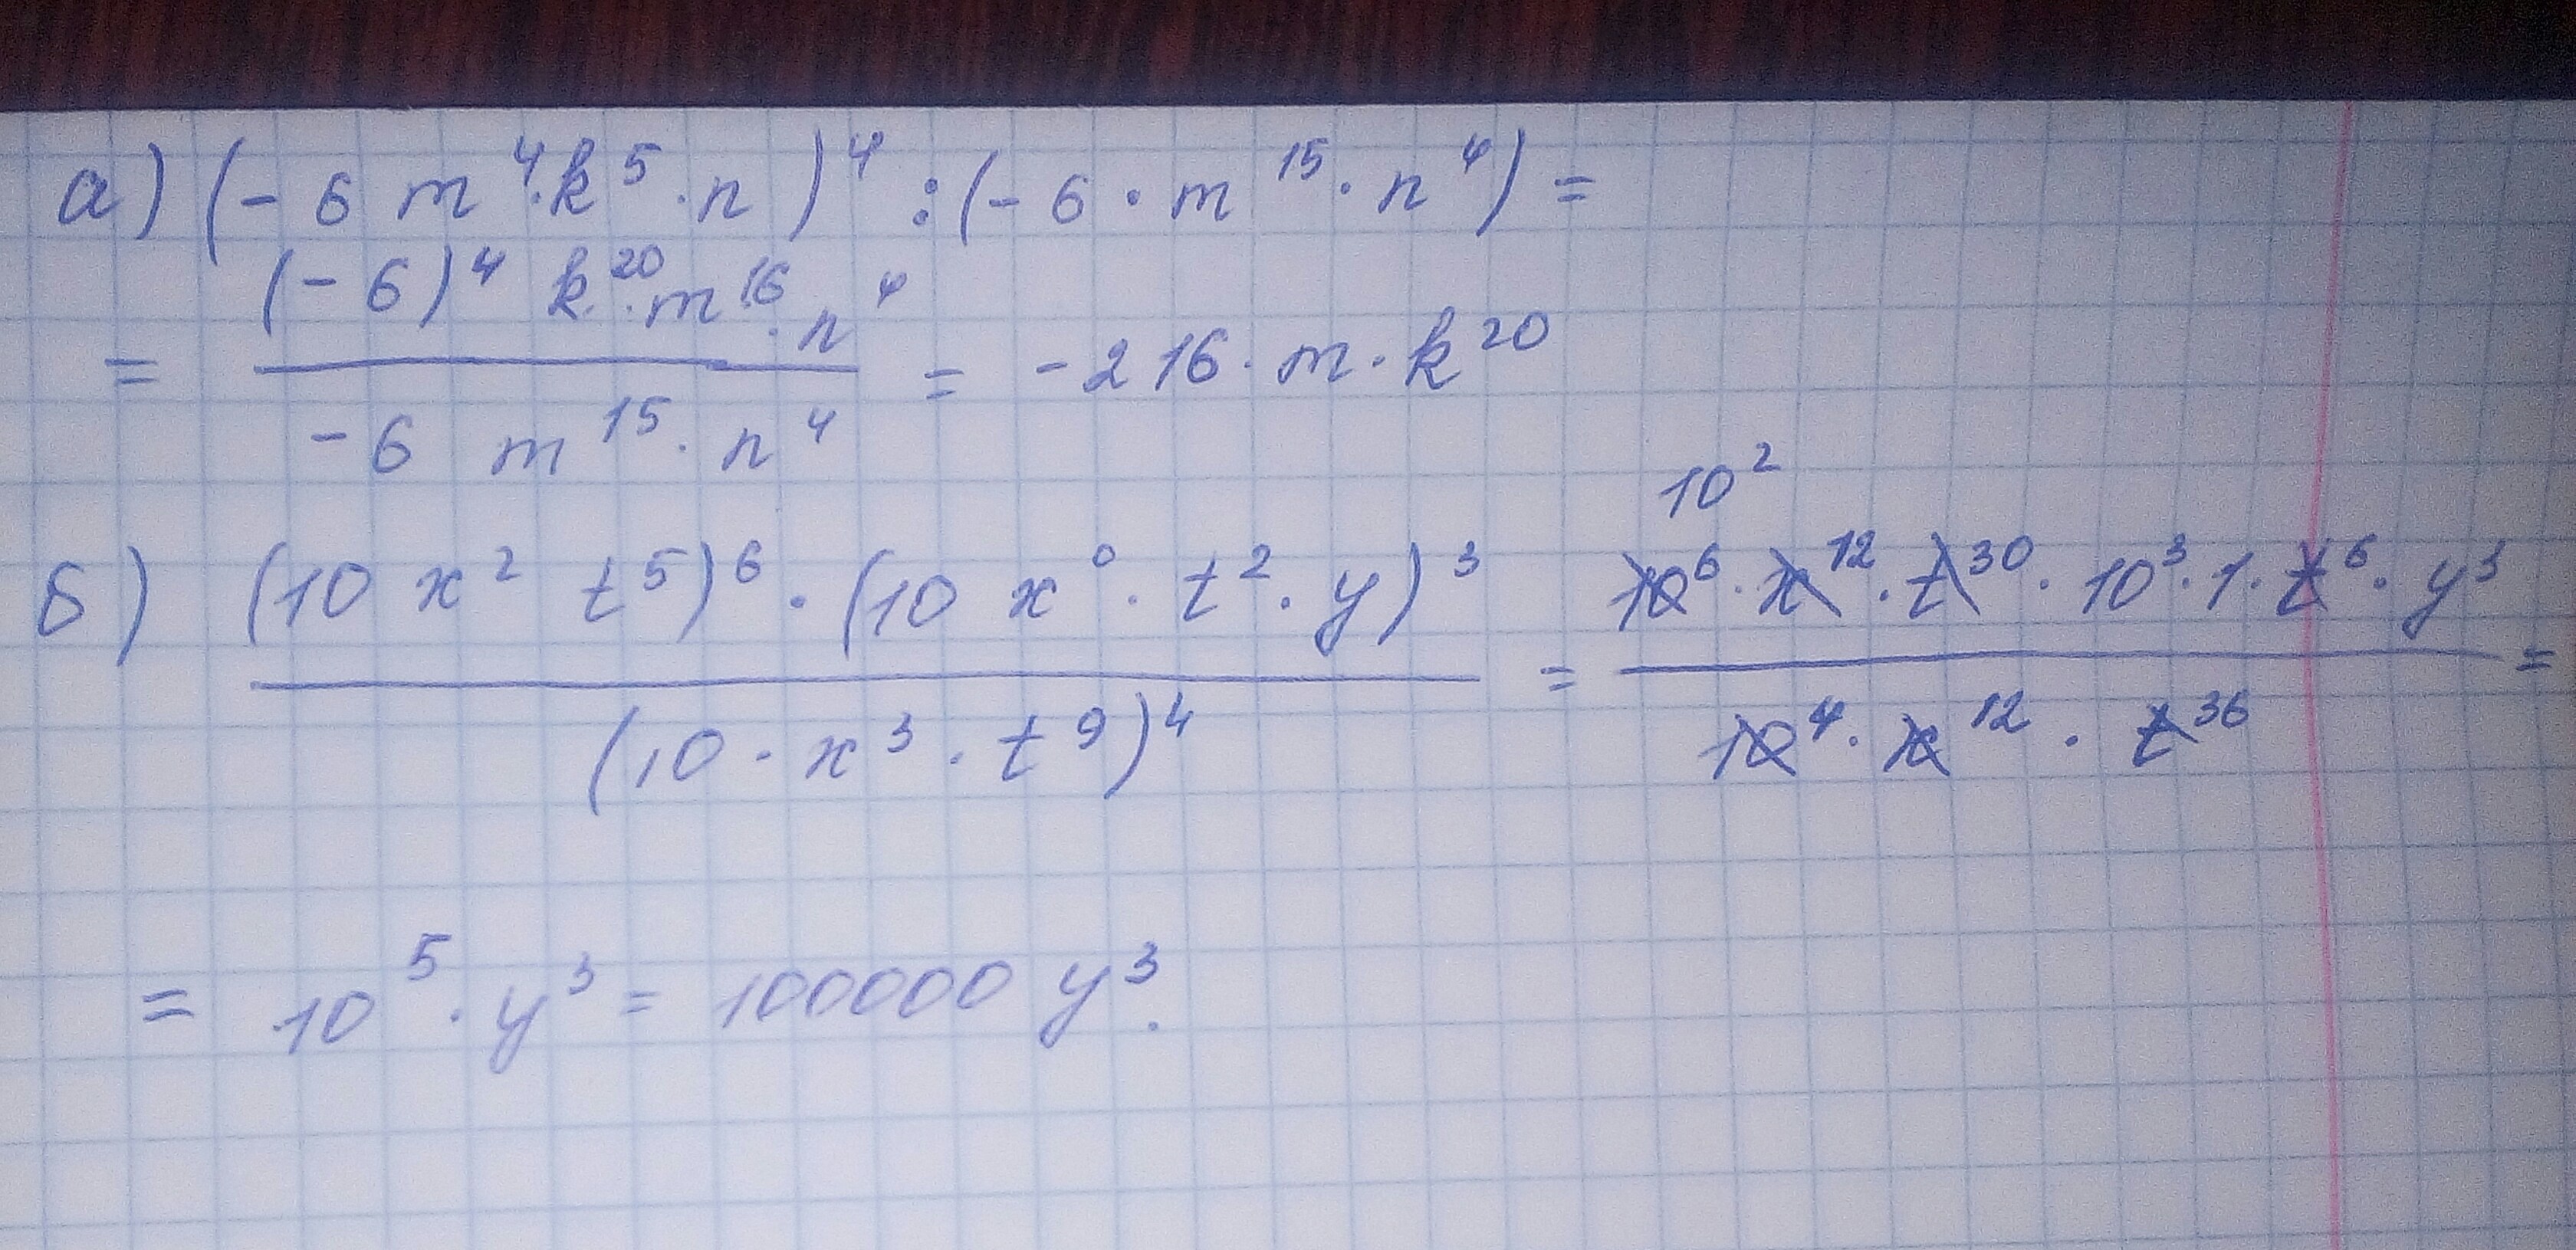 а) (-6 m⁴·k⁵·n)⁴ : (-6·m¹⁵·n⁴) =
= ((-6)⁴ k²⁰·m¹⁶·n⁴)/(-6 m¹⁵·n⁴) = -216·m·k²⁰
10²
б) ((10 x² t⁵)⁶·(10 x⁰·t²·y)³)/((10·x³·t⁹)⁴) = (10⁶·x¹²·t³⁰·10³·1·t⁶·y³)/(10⁴·x¹²·t³⁶) =
= 10⁵·y³ = 100000 y³.